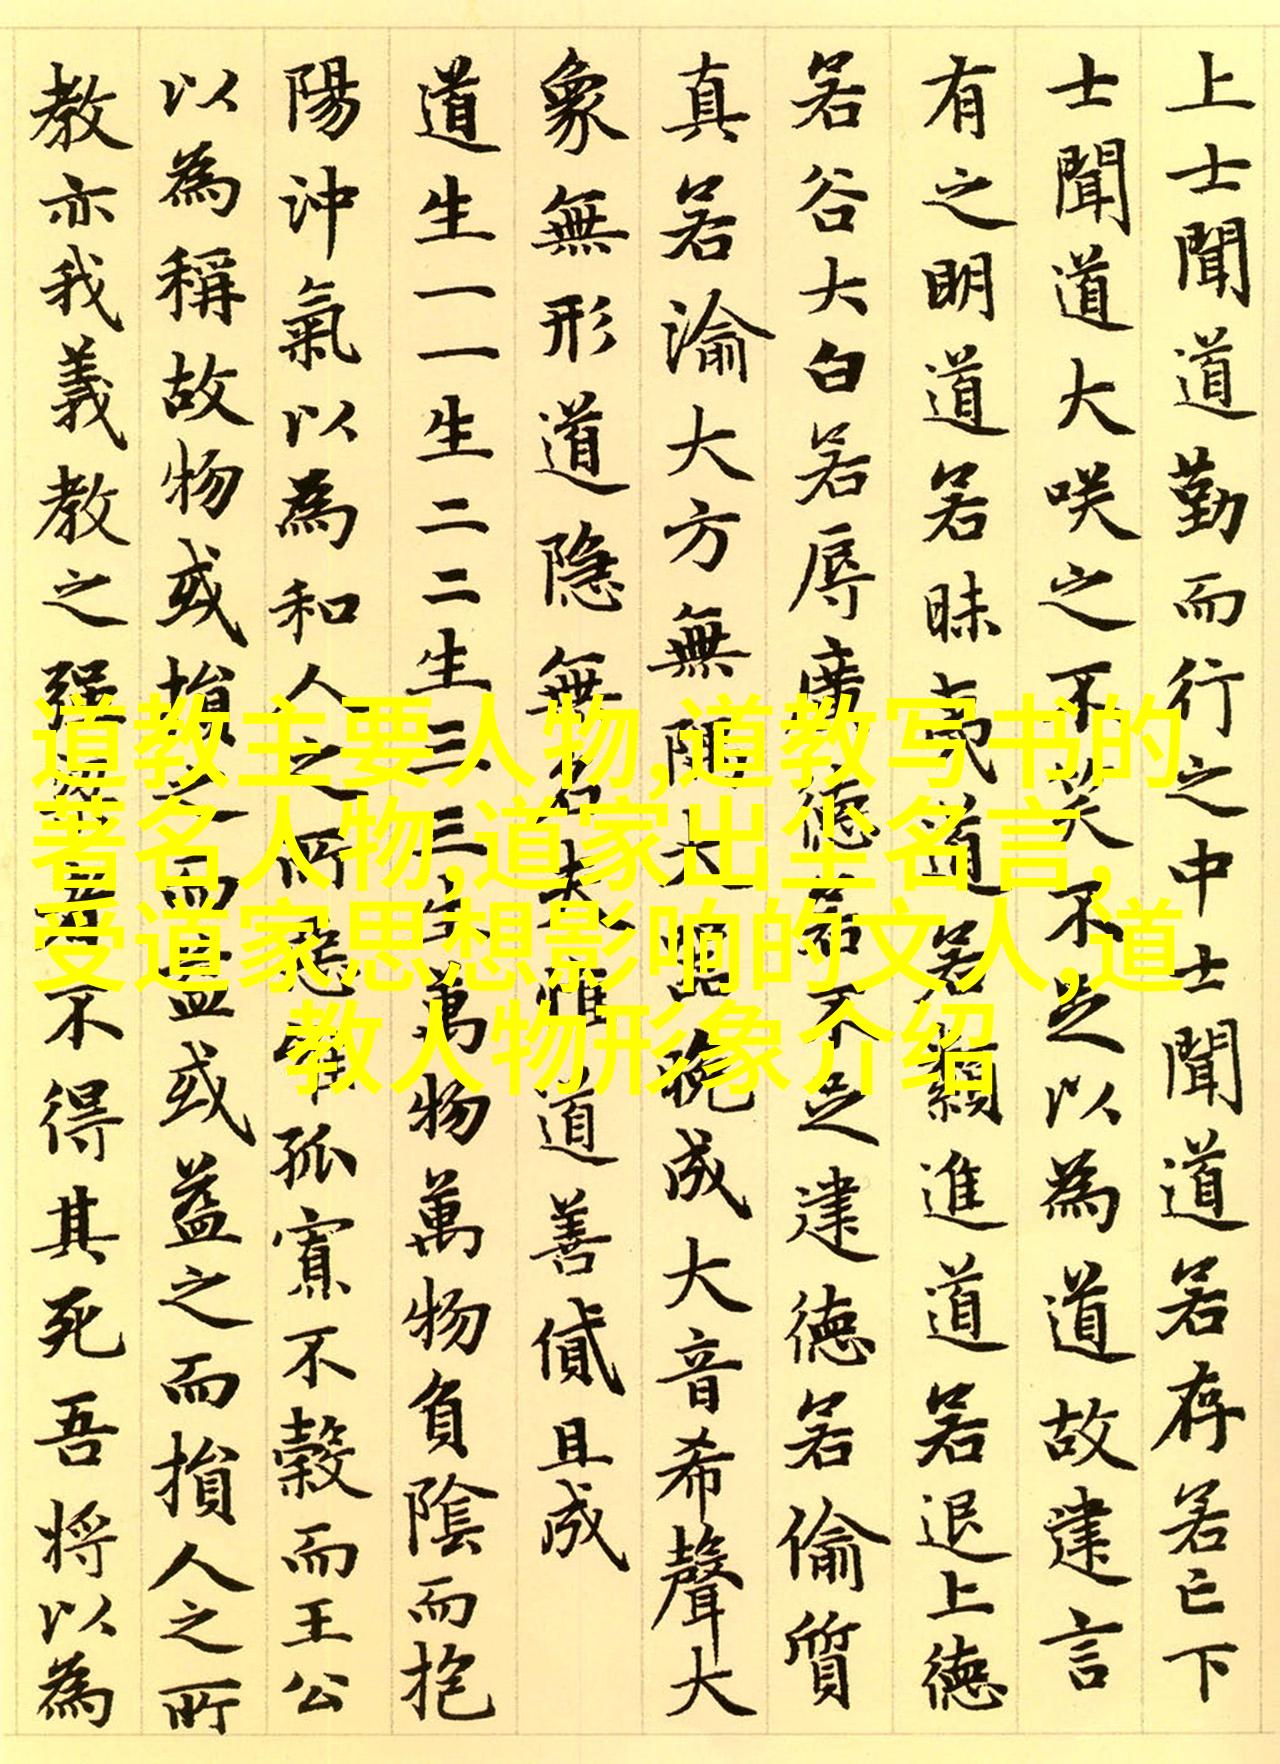 上士聞道勤而行之中士聞道若存若亡下
士聞道大咲之不笑不足以為道故建言
有之明道若昧夷道若纇進道若退上德
若谷大白若辱廣德若不足建德若偷質
真若渝大方無隅大器晚成大音希聲大
象無形道隱無名夫惟道善貸且成
道生一一生二二生三三生萬物萬物負陰而抱
陽沖氣以為和人之所惡惟孤寡不穀而王公
以為稱故物或損之而益或益之而損人之所
教亦我義教之強梁者不得其死吾將以為
道教主要人物,道教写书的
著名人物,道家出尘名言,
受道家思想影响的文人,道
教人物形象介绍